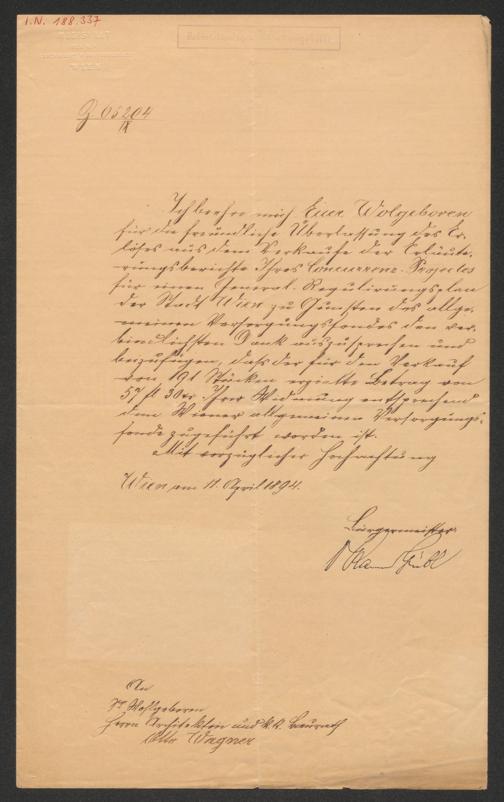 I.N. 188.337
Z. 65204
IX
Ich beehre mich Euer Wolgeboren
für die freundliche Überlassung des Er-
löses aus dem Verkaufe der Erläute-
rungsberichte Ihres Concurrenz-Projectes
für einen General-Regulirungsplan
der Stadt Wien zu Gunsten des allge-
meinen Versorgungsfondes den ver-
bindlichsten Dank auszusprechen und
beizufügen, daß der für den Verkauf
von 191 Stücken erzielte Betrag von
57 fl 30 kr. Ihrer Widmung entsprechend
dem Wiener allgemeinen Versorgungs-
fonde zugeführt worden ist.
Mit vorzüglicher Hochachtung
Wien, am 11. April 1894.
Bürgermeister
An
Sr. Wohlgeboren
Herrn Architekten und k.k. Baurath
Otto Wagner